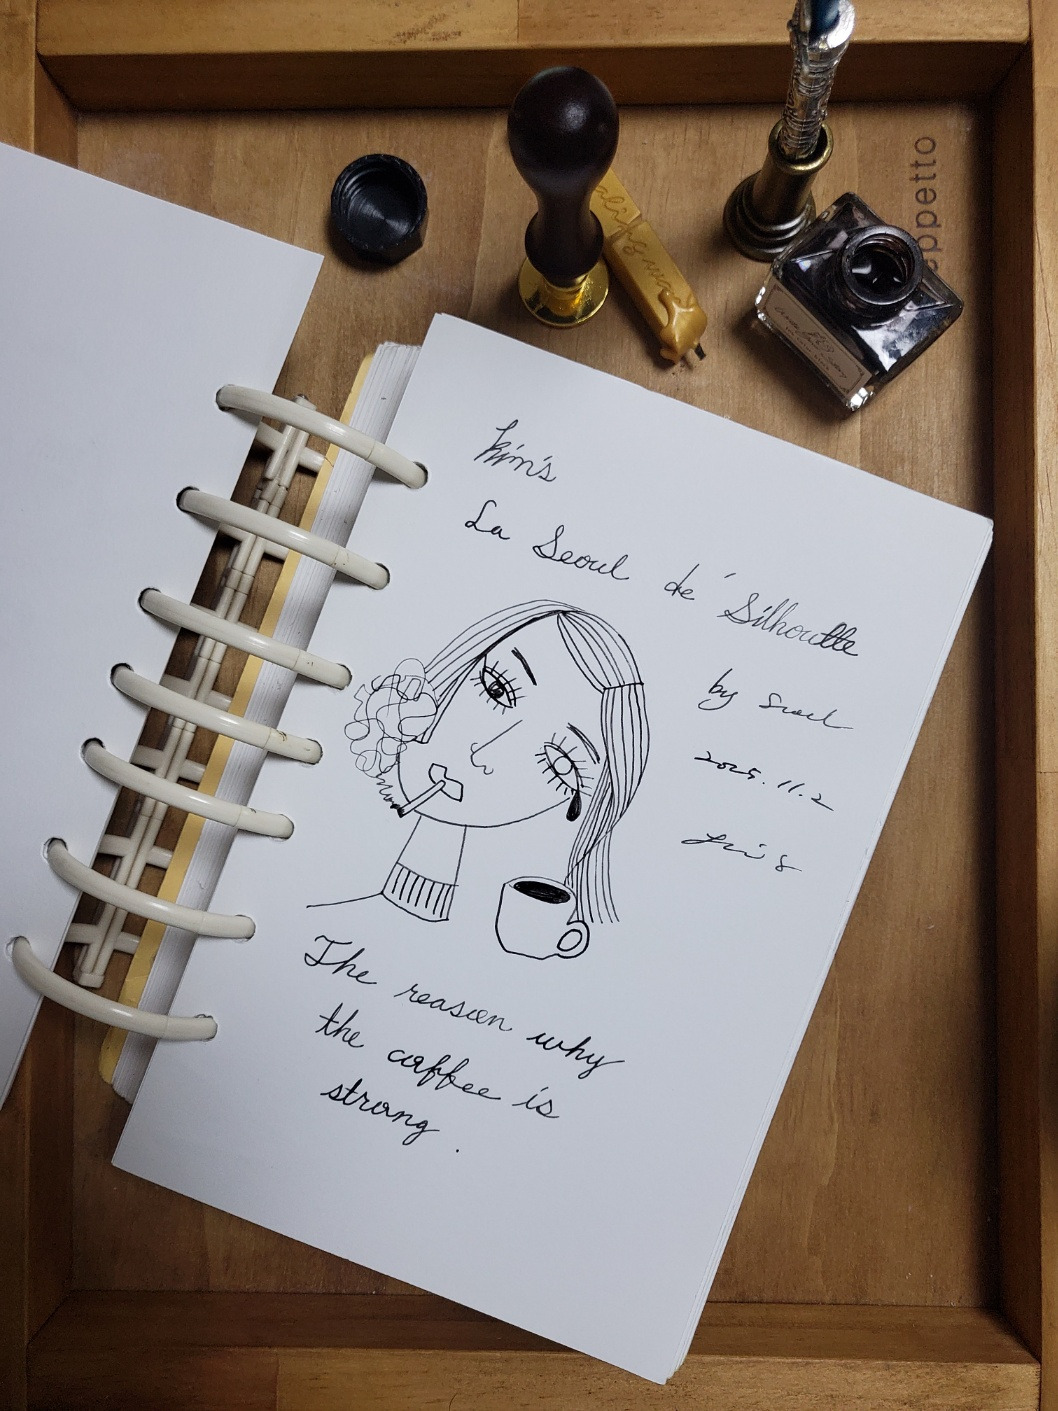 Kim's
La Seoul de´ Silhoutte
by
2025.11.2
The reason why
the coffee is
strong.